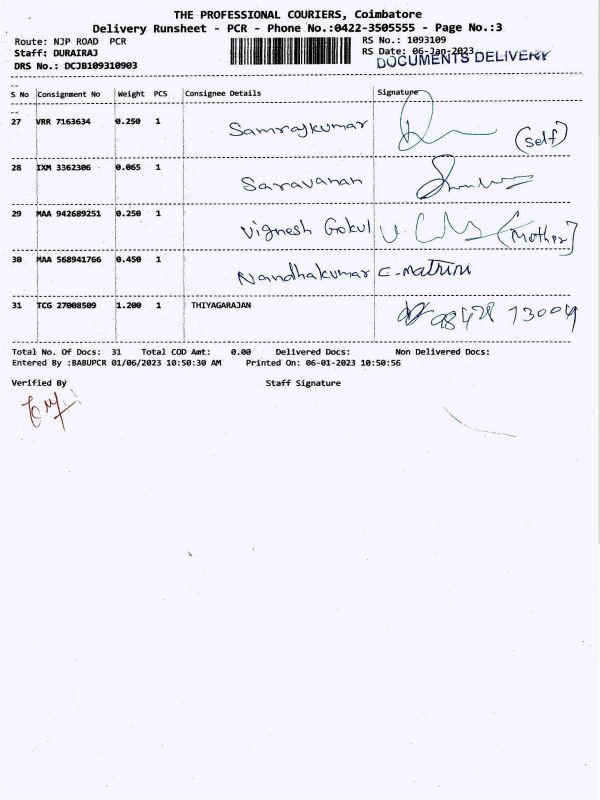 THE PROFESSIONAL COURIERS, Coimbatore
Delivery Runsheet - PCR - Phone No.:0422-3505555 - Page No.:3
Route: NJP ROAD PCR
RS No.: 1093109
Staff: DURAIRAJ
RS Date: 06-Jan-2023
DRS No.: DCJB109310903
DOCUMENTS DELIVERY
S No Consignment No Weight PCS Consignee Details Signature
27 VRR 7163634 0.250 1 Samrajkumar (self)
28 IXM 3362306 0.065 1 Saravanan
29 MAA 942689251 0.250 1 Vignesh Gokul (Mother)
30 MAA 568941766 0.450 1 Nandhakumar
31 TCG 27008509 1.200 1 THIYAGARAJAN 98428 73004
Total No. Of Docs: 31 Total COD Amt: 0.00 Delivered Docs: Non Delivered Docs:
Entered By :BABUPCR 01/06/2023 10:50:30 AM Printed On: 06-01-2023 10:50:56
Verified By Staff Signature